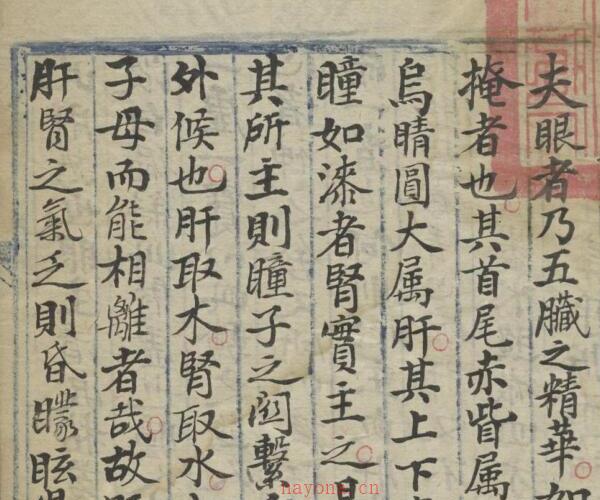 夫眼者乃五臟之精華如
掩者也其首尾赤眥属
烏睛圓大属肝其上下
瞳如漆者腎實主之
其所主則瞳子之関繫
外候也肝取木腎取水
子母而能相離者哉故
肝腎之氣乏則昏矇眩
nayona.cn